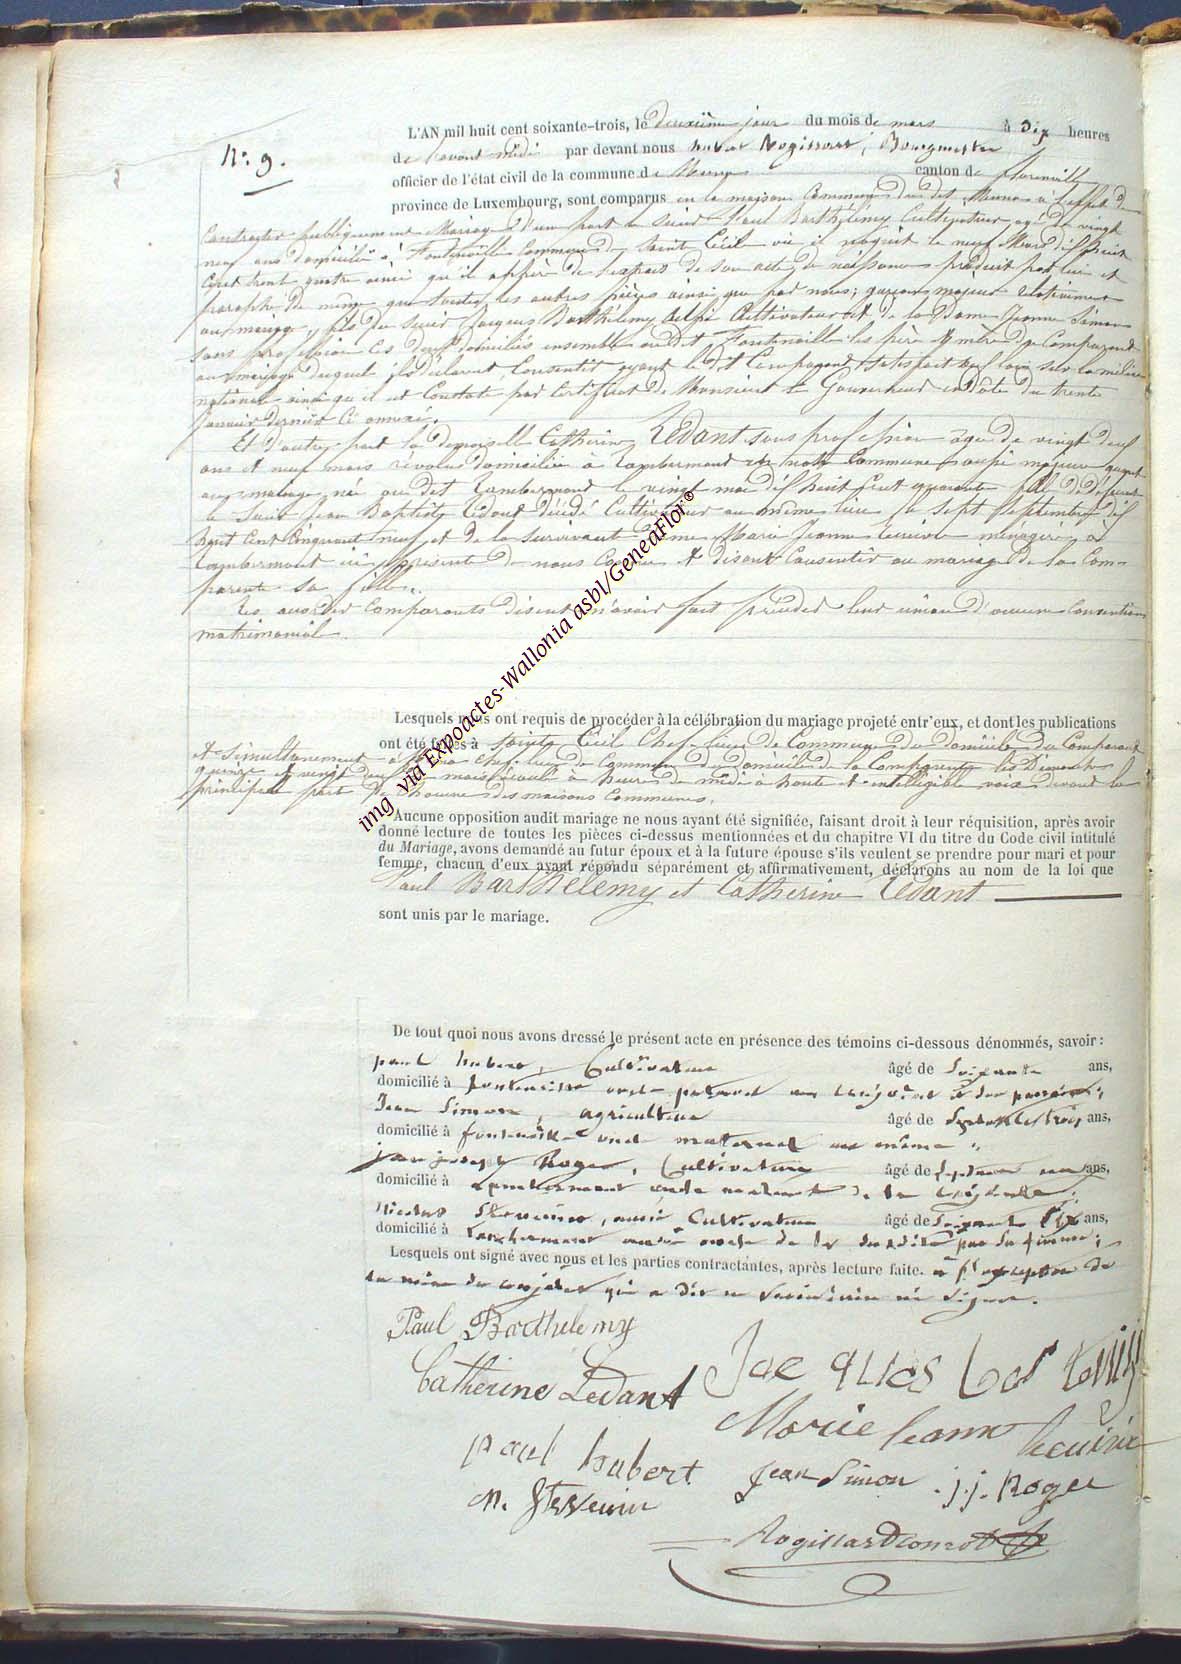 N.º 9.
L'AN mil huit cent soixante-trois, le deuxième jour du mois de mars à dix heures
de l'avant midi par devant nous Rogissart, Bourgmestre
officier de l'état civil de la commune de Muno canton de Florenville
province de Luxembourg, sont comparus en la maison Commune du dit Muno à l'effet de
Contracter publiquement Mariage d'une part le sieur Paul Barthélémy Cultivateur agé de vingt
neuf ans domicilié à Fontenoille Commune de Sainte Cécile où il naquit le neuf Mars dix huit
Cent trente quatre ainsi qu'il appert de l'extrait de son acte de naissance produit par lui et
paraphé de même que toutes les autres pièces ainsi que par nous; garçon majeur relativement
au mariage, fils du sieur Jacques Barthélemy aussi Cultivateur et de la Dame Jeanne Simon
sans profession les deux domiciliés ensemble au dit Fontenoille les père & mère du Comparant
au mariage duquel ils déclarent Consentir ayant le dit Comparant satisfait aux lois sur la milice
nationale ainsi qu'il est Constaté par Certificat de Monsieur le Gouverneur en date du trente
Janvier dernier Ci annexé.
Et d'autre part la demoiselle Catherine Ledant sans profession agée de vingt deux
ans et neuf mois révolus domiciliée à Lambermont en notre Commune aussi majeure quant
au mariage née au dit Lambermont le vingt mai dix huit cent quarante fille de défunt
le Sieur Jean Baptiste Ledant décédé Cultivateur au même lieu le sept Septembre dix
huit Cent Cinquante neuf et de la survivante Dame Marie Jeanne ménagère à
Lambermont ici présente de nous Connue & disant Consentir au mariage de la Com-
parente sa fille.
Les Comparants disent n'avoir fait précéder leur union d'aucune Convention
matrimoniale.
Lesquels nous ont requis de procéder à la célébration du mariage projeté entr'eux, et dont les publications
ont été faites à Sainte Cécile Chef-lieu de Commune du domicile du Comparant
& Simultanement à Muno Chef-lieu de Commune du domicile de la Comparente les Dimanches
quinze et vingt deux mois écoulé à heure de midi à haute et intelligible voix devant la
principale porte de chacune des maisons Communes.
Aucune opposition audit mariage ne nous ayant été signifiée, faisant droit à leur réquisition, après avoir
donné lecture de toutes les pièces ci-dessus mentionnées et du chapitre VI du titre du Code civil intitulé
du Mariage, avons demandé au futur époux et à la future épouse s'ils veulent se prendre pour mari et pour
femme, chacun d'eux ayant répondu séparément et affirmativement, déclarons au nom de la loi que
Paul Barthélemy et Catherine Ledant
sont unis par le mariage.
De tout quoi nous avons dressé le présent acte en présence des témoins ci-dessous dénommés, savoir:
paul hubert, Cultivateur âgé de Soixante ans,
domicilié à fontenoille oncle paternel au conjoint
Jean Simon, agriculteur âgé de Septante trois ans,
domicilié à fontenoille oncle maternel au même;
jean joseph Roger, Cultivateur âgé de Septante un ans,
domicilié à Lambermont oncle maternel de la conjointe;
Nicolas Stevenin, aussi Cultivateur âgé de Soixante six ans,
domicilié à Lambermont aussi oncle de la dudite par sa femme;
Lesquels ont signé avec nous et les parties contractantes, après lecture faite. à l'exception de
la mère du conjoint qui a dit ne savoir écrire ni signer.
Paul Barthelemy
Catherine Ledant
Marie Jeanne
paul hubert
Jean Simon
j.j. Roger
N. Stevenin
img via Expoactes-Wallonia asbl/GeneaFlor®